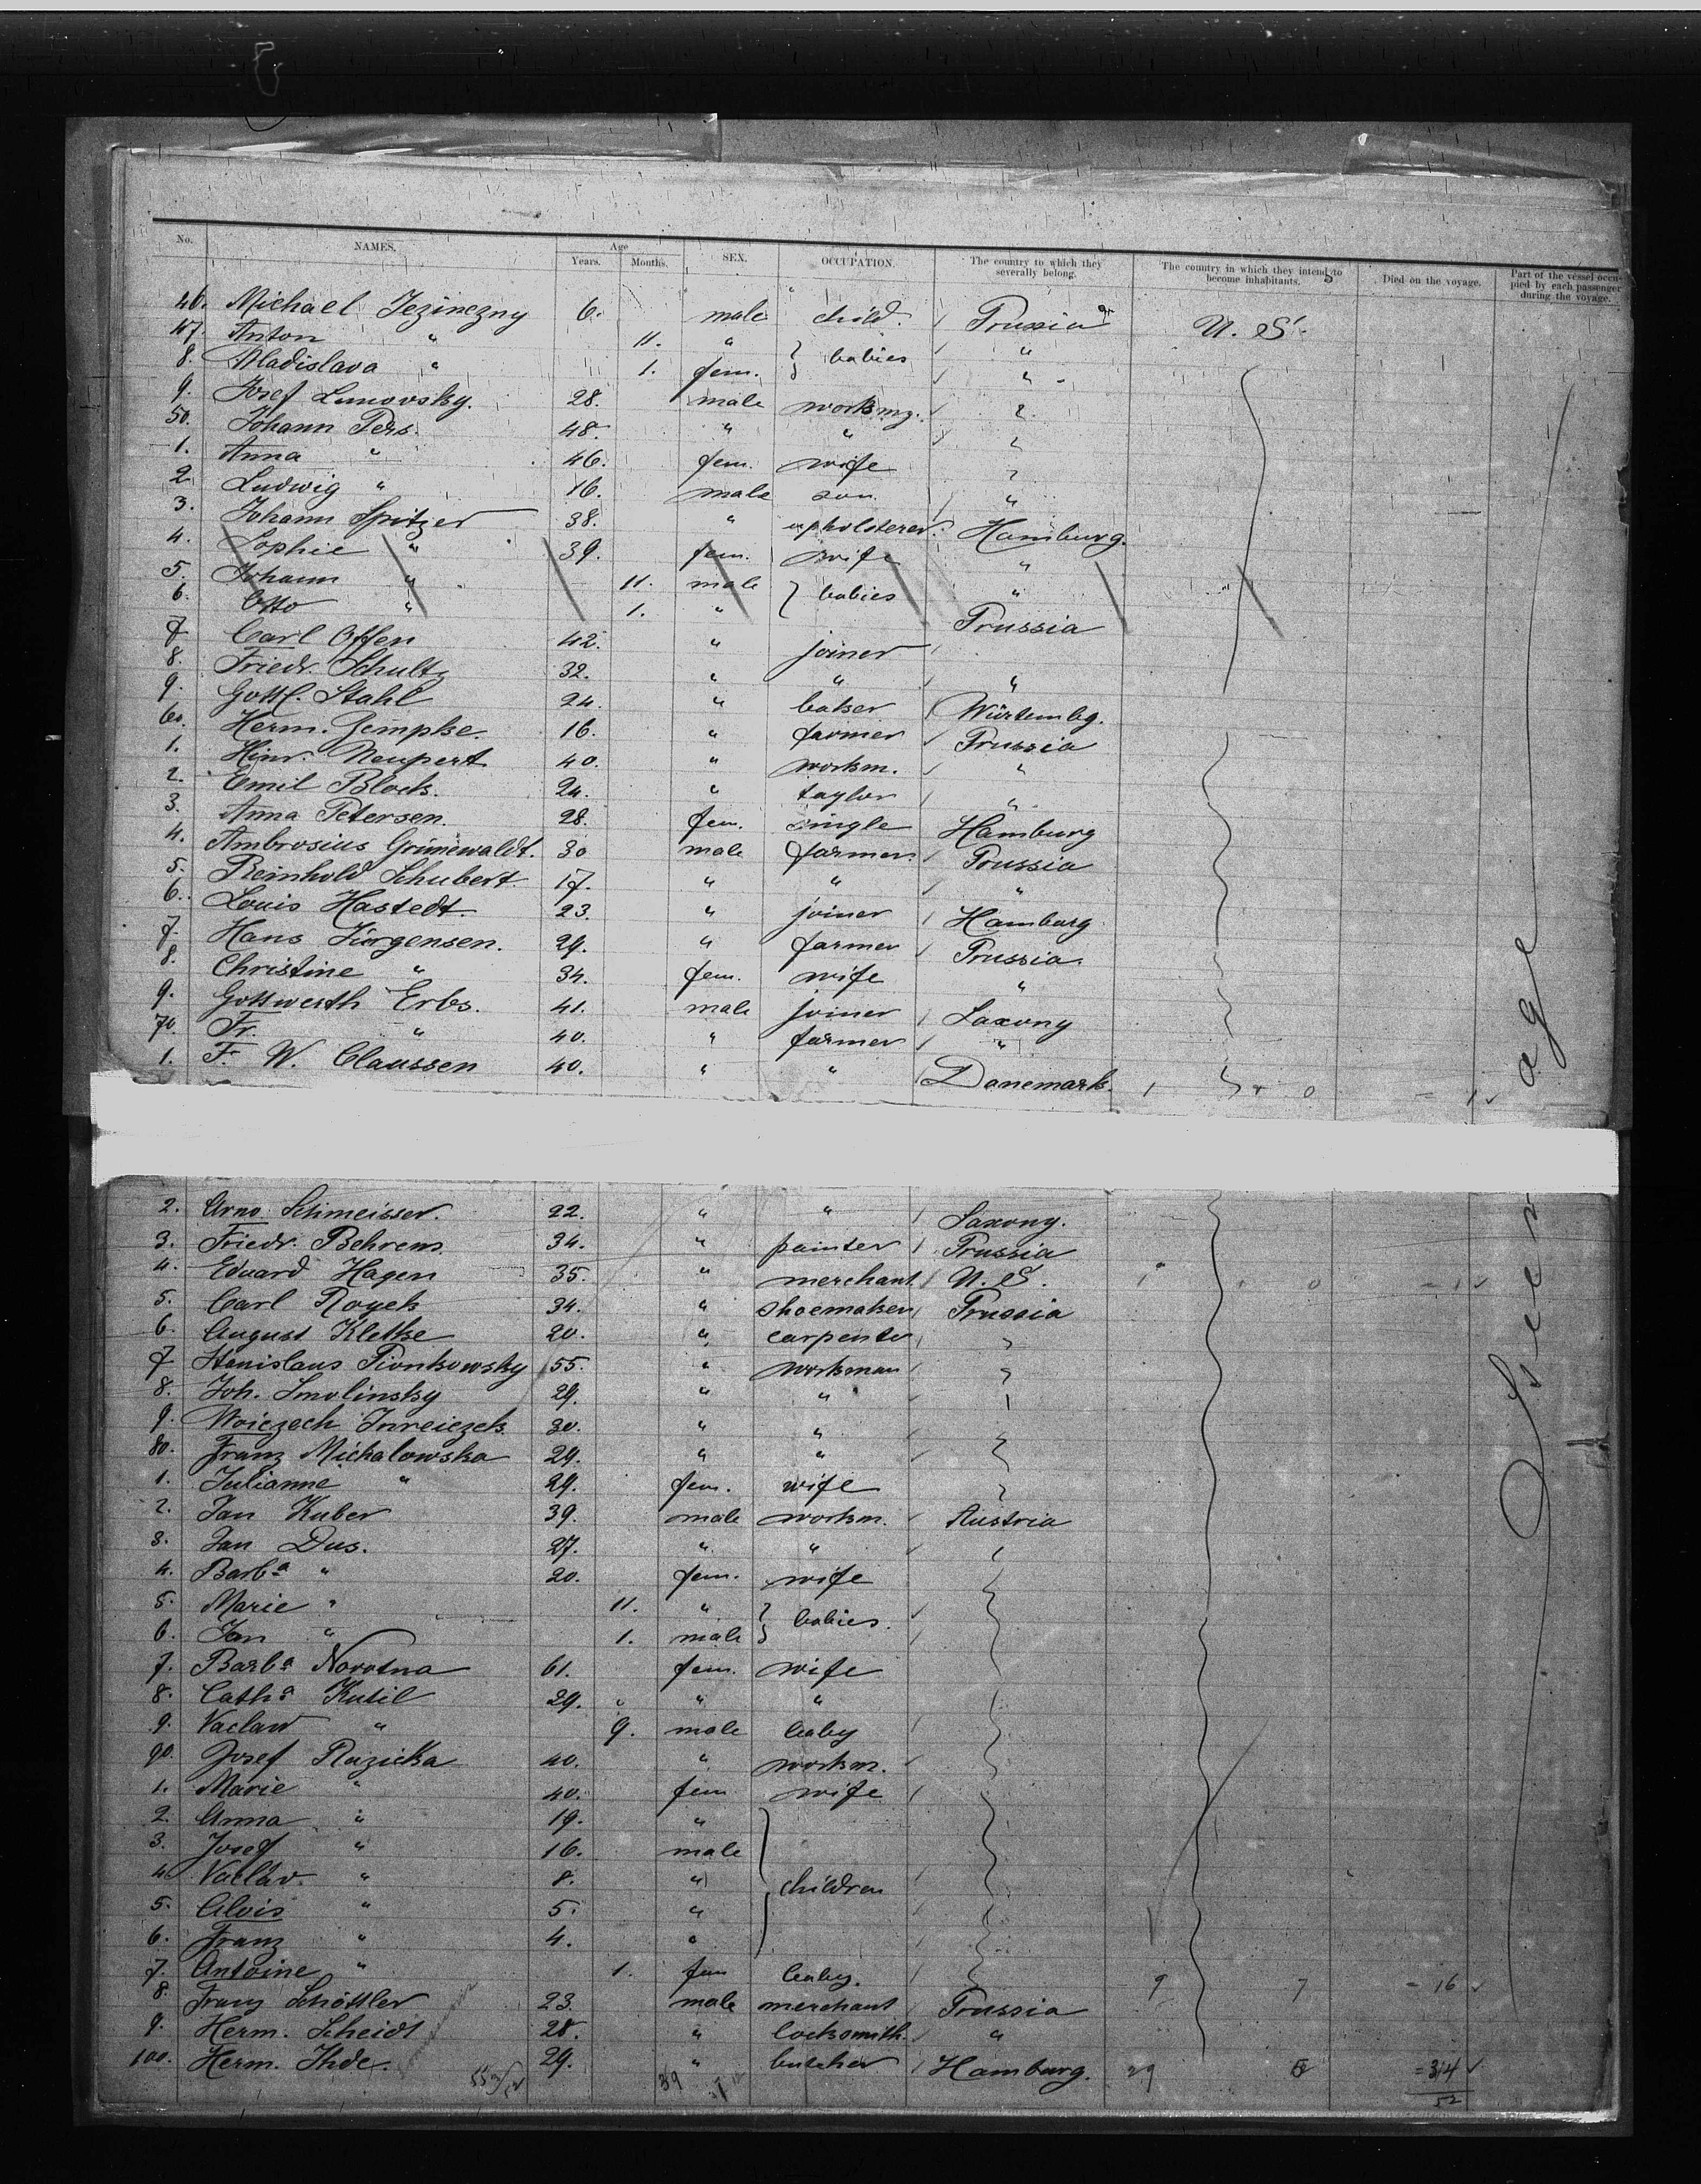 No. NAMES. Age Years. Months. SEX. OCCUPATION. The country to which they severally belong. The country in which they intend to become inhabitants. Died on the voyage. Part of the vessel occupied by each passenger during the voyage.
46. Michael Jezinezny 6. male child. Prussia U. S.
47. Anton " 11. " } babies "
8. Wladislava " 1. fem. "
9. Josef Lunovsky. 28. male workmg. "
50. Johann Pers. 48. " " "
1. Anna " 46. fem. wife "
2. Ludwig " 16. male son. "
3. Johann Spitzer 38. " upholsterer. Hamburg.
4. Sophie " 39. fem. wife "
5. Johann " 11. male } babies "
6. Otto " 1. "
7. Carl Offen 42. " joiner Prussia
8. Friedr. Schultz 32. " " "
9. Gottl. Stahl 24. " baker Würtembg.
60. Herm. Gempke. 16. " farmer Prussia
1. Hinr. Neupert 40. " workm. "
2. Emil Block. 24. " taylor "
3. Anna Petersen. 28. fem. single Hamburg
4. Ambrosius Grünewaldt. 30 male farmer. Prussia
5. Reinhold Schubert. 17. " " "
6. Louis Hastedt 23. " joiner Hamburg
7. Hans Jürgensen. 29. " farmer Prussia.
8. Christine " 34. fem. wife "
9. Gottwerth Erbs. 41. male joiner Saxony
70. Fr. " 40. " farmer "
1. F. W. Claussen 40. " " Danemark. 1 0 = 1
2. Arno Schmeisser. 22. " " Saxony.
3. Friedr. Behrens. 34. " painter Prussia
4. Eduard Hagen 35. " merchant U. S. 1 0 = 1
5. Carl Royek 34. " shoemaker Prussia
6. August Kletke 20. " carpenter "
7. Stanislaus Pionkowsky 55. " workman "
8. Joh. Smolinsky 29. " "
9. Woiczech Inreiczek. 30. " "
80. Franz Michalowska 29. " "
1. Julianne " 29. fem. wife "
2. Jan Kuber 39. male workm. Austria
3. Jan Dus. 27. " "
4. Barba " 20. fem. wife
5. Marie " 11. " } babies.
6. Jan " 1. male
7. Barba Novotna 61. fem. wife
8. Catha Kutil 29. " "
9. Vaclav " 9. male baby
90. Josef Ruzicka 40. " workm.
1. Marie " 40. fem. wife
2. Anna " 19. "
3. Josef " 16. male
4. Vaclav. " 8. " children
5. Alois " 5. "
6. Franz " 4. "
7. Antoine " 1. fem baby. 9 7 = 16
8. Franz Schöttler 23. male merchant Prussia
9. Herm. Scheidt 28. " locksmith. "
100. Herm. Ihde. 29. " butcher Hamburg. 29 = 34
39 52